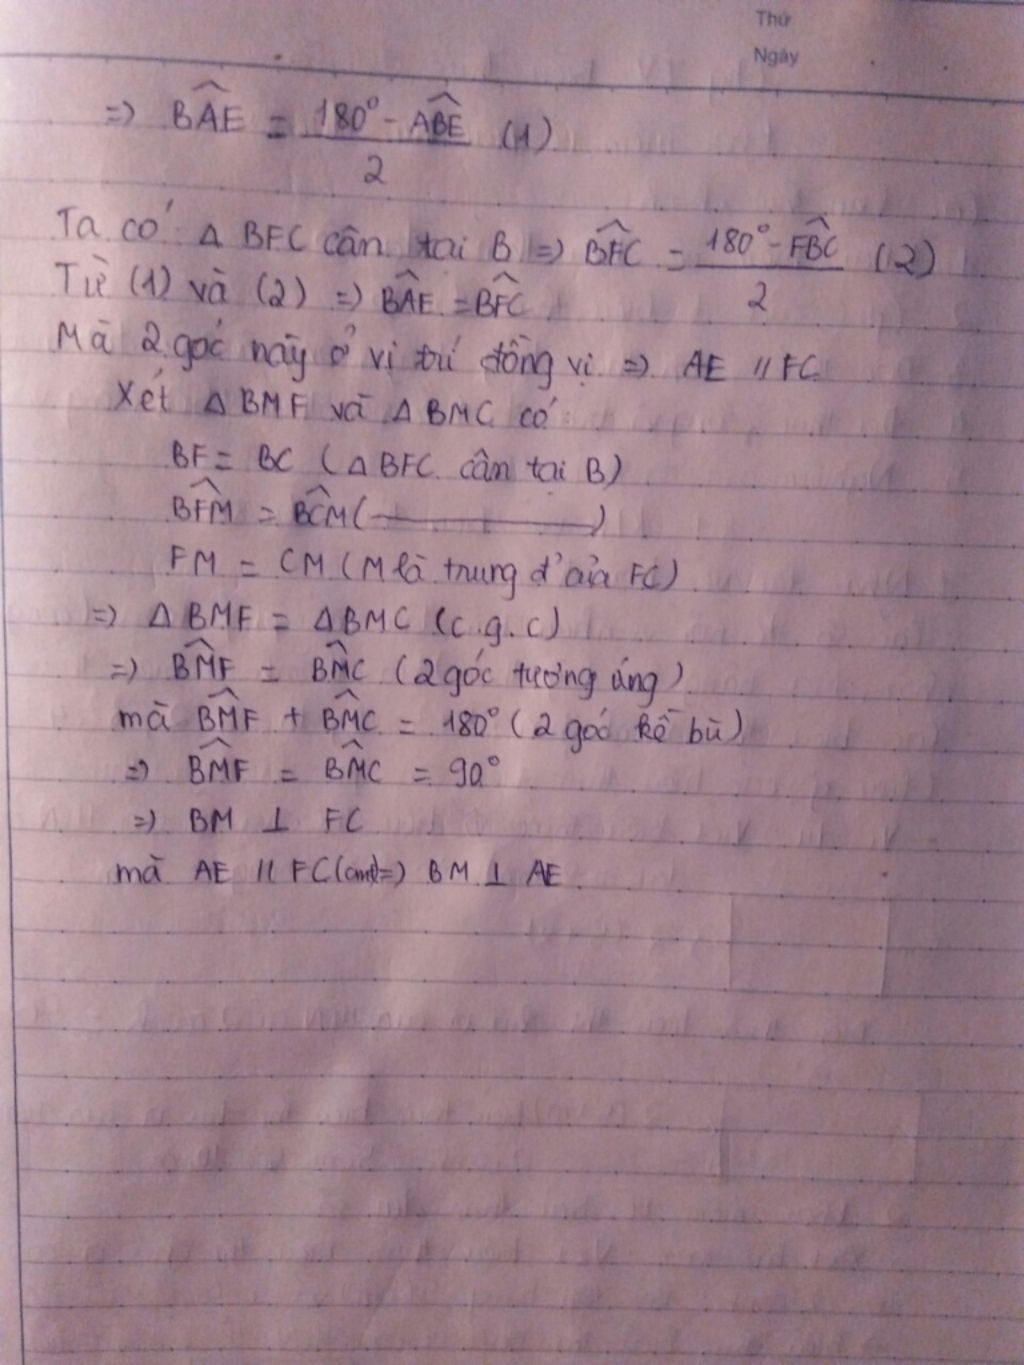 Thứ
Ngày
=> BÂE = 180° - ABE / 2 (1)
Ta có △ BFC cân tại B => BFC = 180° - FBC / 2 (2)
Từ (1) và (2) => BAE = BFC
Mà 2 góc này ở vị trí đồng vị => AE // FC
Xét △ BMF và △ BMC có:
BF = BC (△ BFC cân tại B)
BFM = BCM (————)
FM = CM (M là trung đ' của FC)
=> △ BMF = △ BMC (c.g.c)
=> BMF = BMC (2 góc tương ứng)
mà BMF + BMC = 180° (2 góc kề bù)
=> BMF = BMC = 90°
=> BM ⊥ FC
mà AE // FC (cmt) => BM ⊥ AE